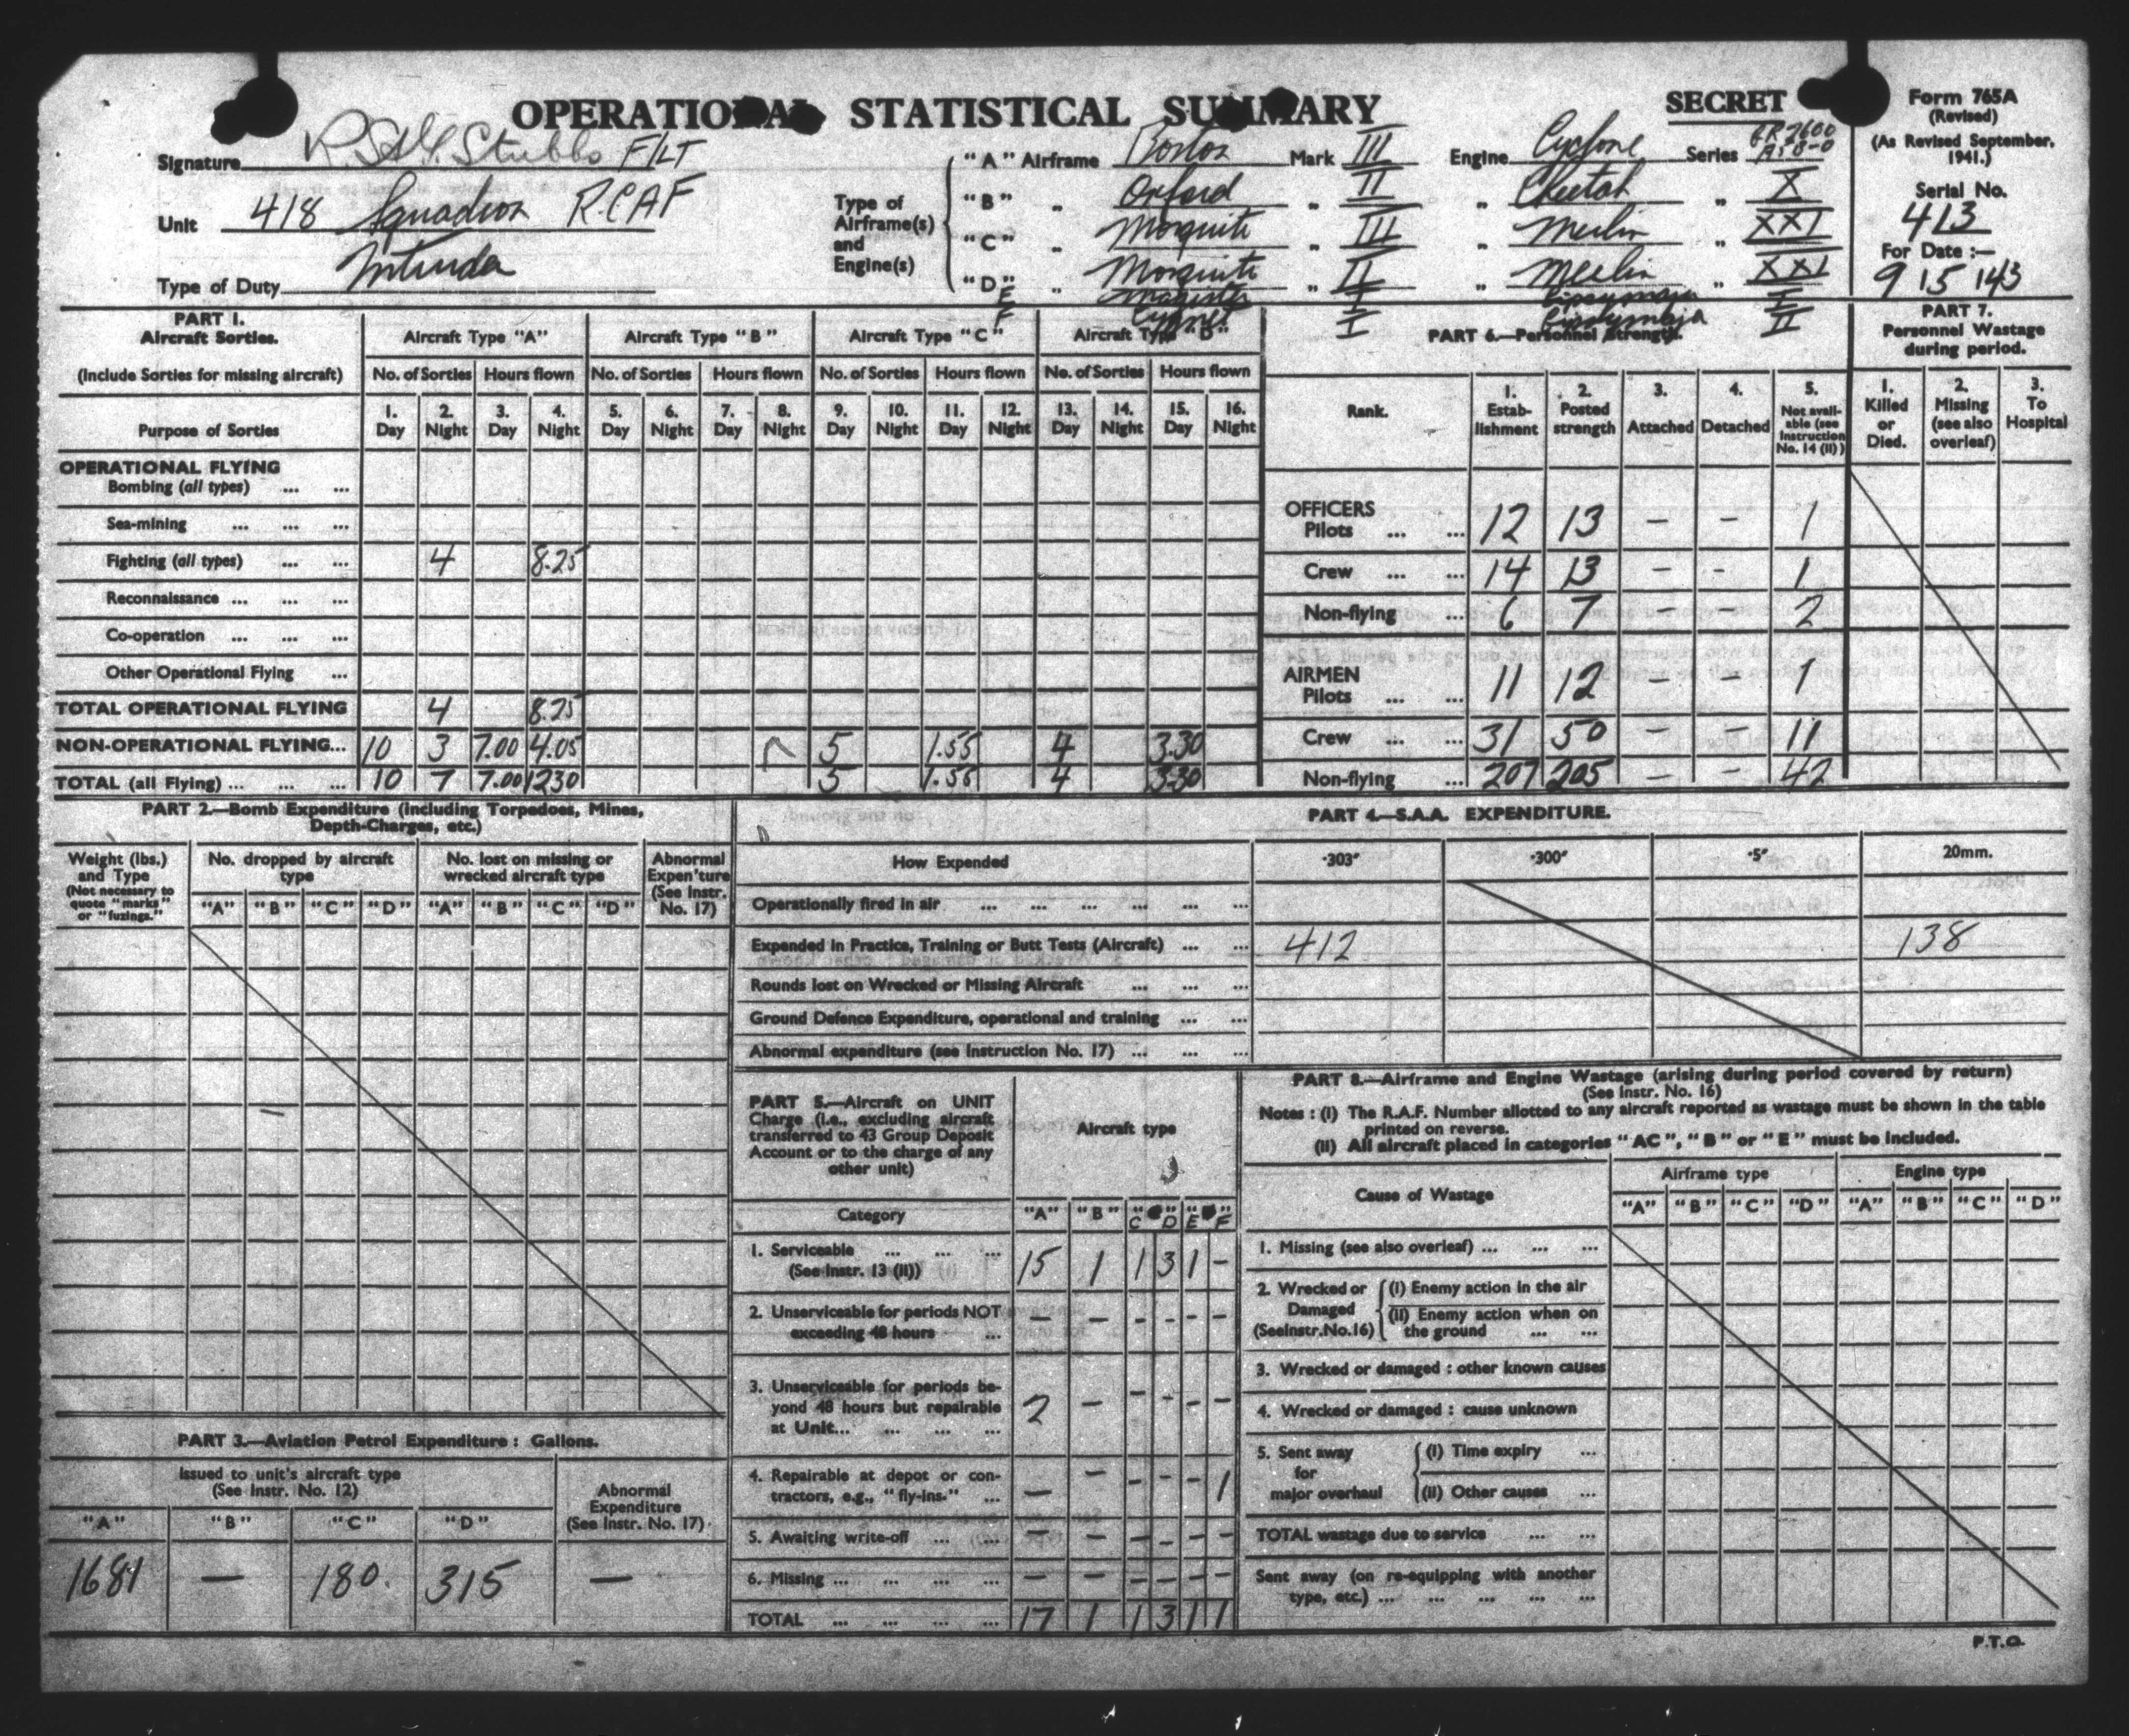 OPERATIONAL STATISTICAL SUMMARY
SECRET
Form 765A
(Revised)
(As Revised September, 1941.)
Serial No.
413
For Date :—
9/5/43
Signature Stubbs F/LT
Unit 418 Squadron R.C.A.F
Type of Duty Intruder
Type of Airframe(s) and Engine(s)
"A" Airframe Boston Mark III Engine Cyclone Series GR 2600 A5B-0
"B" „ Oxford „ II „ Cheetah „ X
"C" „ Mosquito „ III „ Merlin „ XXI
"D" „ Mosquito „ II „ Merlin „ XXI
E Magister I Gipsymajor I
F Cygnet I Gipsymajor II
PART 1.
Aircraft Sorties.
(Include Sorties for missing aircraft)
Aircraft Type "A" Aircraft Type "B" Aircraft Type "C" Aircraft Type "D"
No. of Sorties Hours flown No. of Sorties Hours flown No. of Sorties Hours flown No. of Sorties Hours flown
Purpose of Sorties
1. Day 2. Night 3. Day 4. Night 5. Day 6. Night 7. Day 8. Night 9. Day 10. Night 11. Day 12. Night 13. Day 14. Night 15. Day 16. Night
OPERATIONAL FLYING
Bombing (all types) ... ...
Sea-mining ... ... ...
Fighting (all types) ... ... 4 8.25
Reconnaissance ... ... ...
Co-operation ... ... ...
Other Operational Flying ...
TOTAL OPERATIONAL FLYING 4 8.25
NON-OPERATIONAL FLYING... 10 3 7.00 4.05 5 1.55 4 3.30
TOTAL (all Flying) ... ... ... 10 7 7.00 1230 5 1.55 4 3.30
PART 6.—Personnel Strength.
Rank.
1. Establishment
2. Posted strength
3. Attached
4. Detached
5. Not available (see Instruction No. 14 (II))
OFFICERS
Pilots ... ... 12 13 — — 1
Crew ... ... 14 13 — - 1
Non-flying ... 6 7 — — 2
AIRMEN
Pilots ... ... 11 12 — — 1
Crew ... ... 31 50 — — 11
Non-flying ... 207 205 — — 42
PART 7.
Personnel Wastage
during period.
1. Killed or Died.
2. Missing (see also overleaf)
3. To Hospital
PART 2.—Bomb Expenditure (including Torpedoes, Mines,
Depth-Charges, etc.)
Weight (lbs.) and Type (Not necessary to quote "marks" or "fuzings.")
No. dropped by aircraft type
No. lost on missing or wrecked aircraft type
Abnormal Expen'ture (See Instr. No. 17)
"A" "B" "C" "D" "A" "B" "C" "D"
—
PART 4.—S.A.A. EXPENDITURE.
How Expended ·303" ·300" ·5" 20mm.
Operationally fired in air ... ... ... ... ... ...
Expended in Practice, Training or Butt Tests (Aircraft) ... ... 412 138
Rounds lost on Wrecked or Missing Aircraft ... ... ...
Ground Defence Expenditure, operational and training ... ...
Abnormal expenditure (see Instruction No. 17) ... ... ...
PART 5.—Aircraft on UNIT
Charge (i.e., excluding aircraft
transferred to 43 Group Deposit
Account or to the charge of any
other unit)
Aircraft type
Category "A" "B" "C" "D" "E" "F"
1. Serviceable ... ... ...
(See Instr. 13 (II)) 15 1 1 3 1 -
2. Unserviceable for periods NOT
exceeding 48 hours ... — — - - - -
3. Unserviceable for periods be-
yond 48 hours but repairable
at Unit... ... ... ... 2 — - - - -
4. Repairable at depot or con-
tractors, e.g., "fly-ins." ... — — - - - 1
5. Awaiting write-off ... ... — — - - - -
6. Missing ... ... ... ... — — - - - -
TOTAL ... ... ... ... 17 1 1 3 1 1
PART 8.—Airframe and Engine Wastage (arising during period covered by return)
(See Instr. No. 16)
Notes : (i) The R.A.F. Number allotted to any aircraft reported as wastage must be shown in the table
printed on reverse.
(ii) All aircraft placed in categories "AC", "B" or "E" must be included.
Cause of Wastage
Airframe type Engine type
"A" "B" "C" "D" "A" "B" "C" "D"
1. Missing (see also overleaf) ... ... ...
2. Wrecked or Damaged (See Instr. No. 16)
(i) Enemy action in the air
(ii) Enemy action when on the ground ... ...
3. Wrecked or damaged : other known causes
4. Wrecked or damaged : cause unknown
5. Sent away for major overhaul
(i) Time expiry ...
(ii) Other causes ...
TOTAL wastage due to service ... ...
Sent away (on re-equipping with another
type, etc.) ... ... ... ... ...
PART 3.—Aviation Petrol Expenditure : Gallons.
Issued to unit's aircraft type
(See Instr. No. 12)
Abnormal Expenditure (See Instr. No. 17)
"A" "B" "C" "D"
1681 — 180. 315 —
P.T.O.